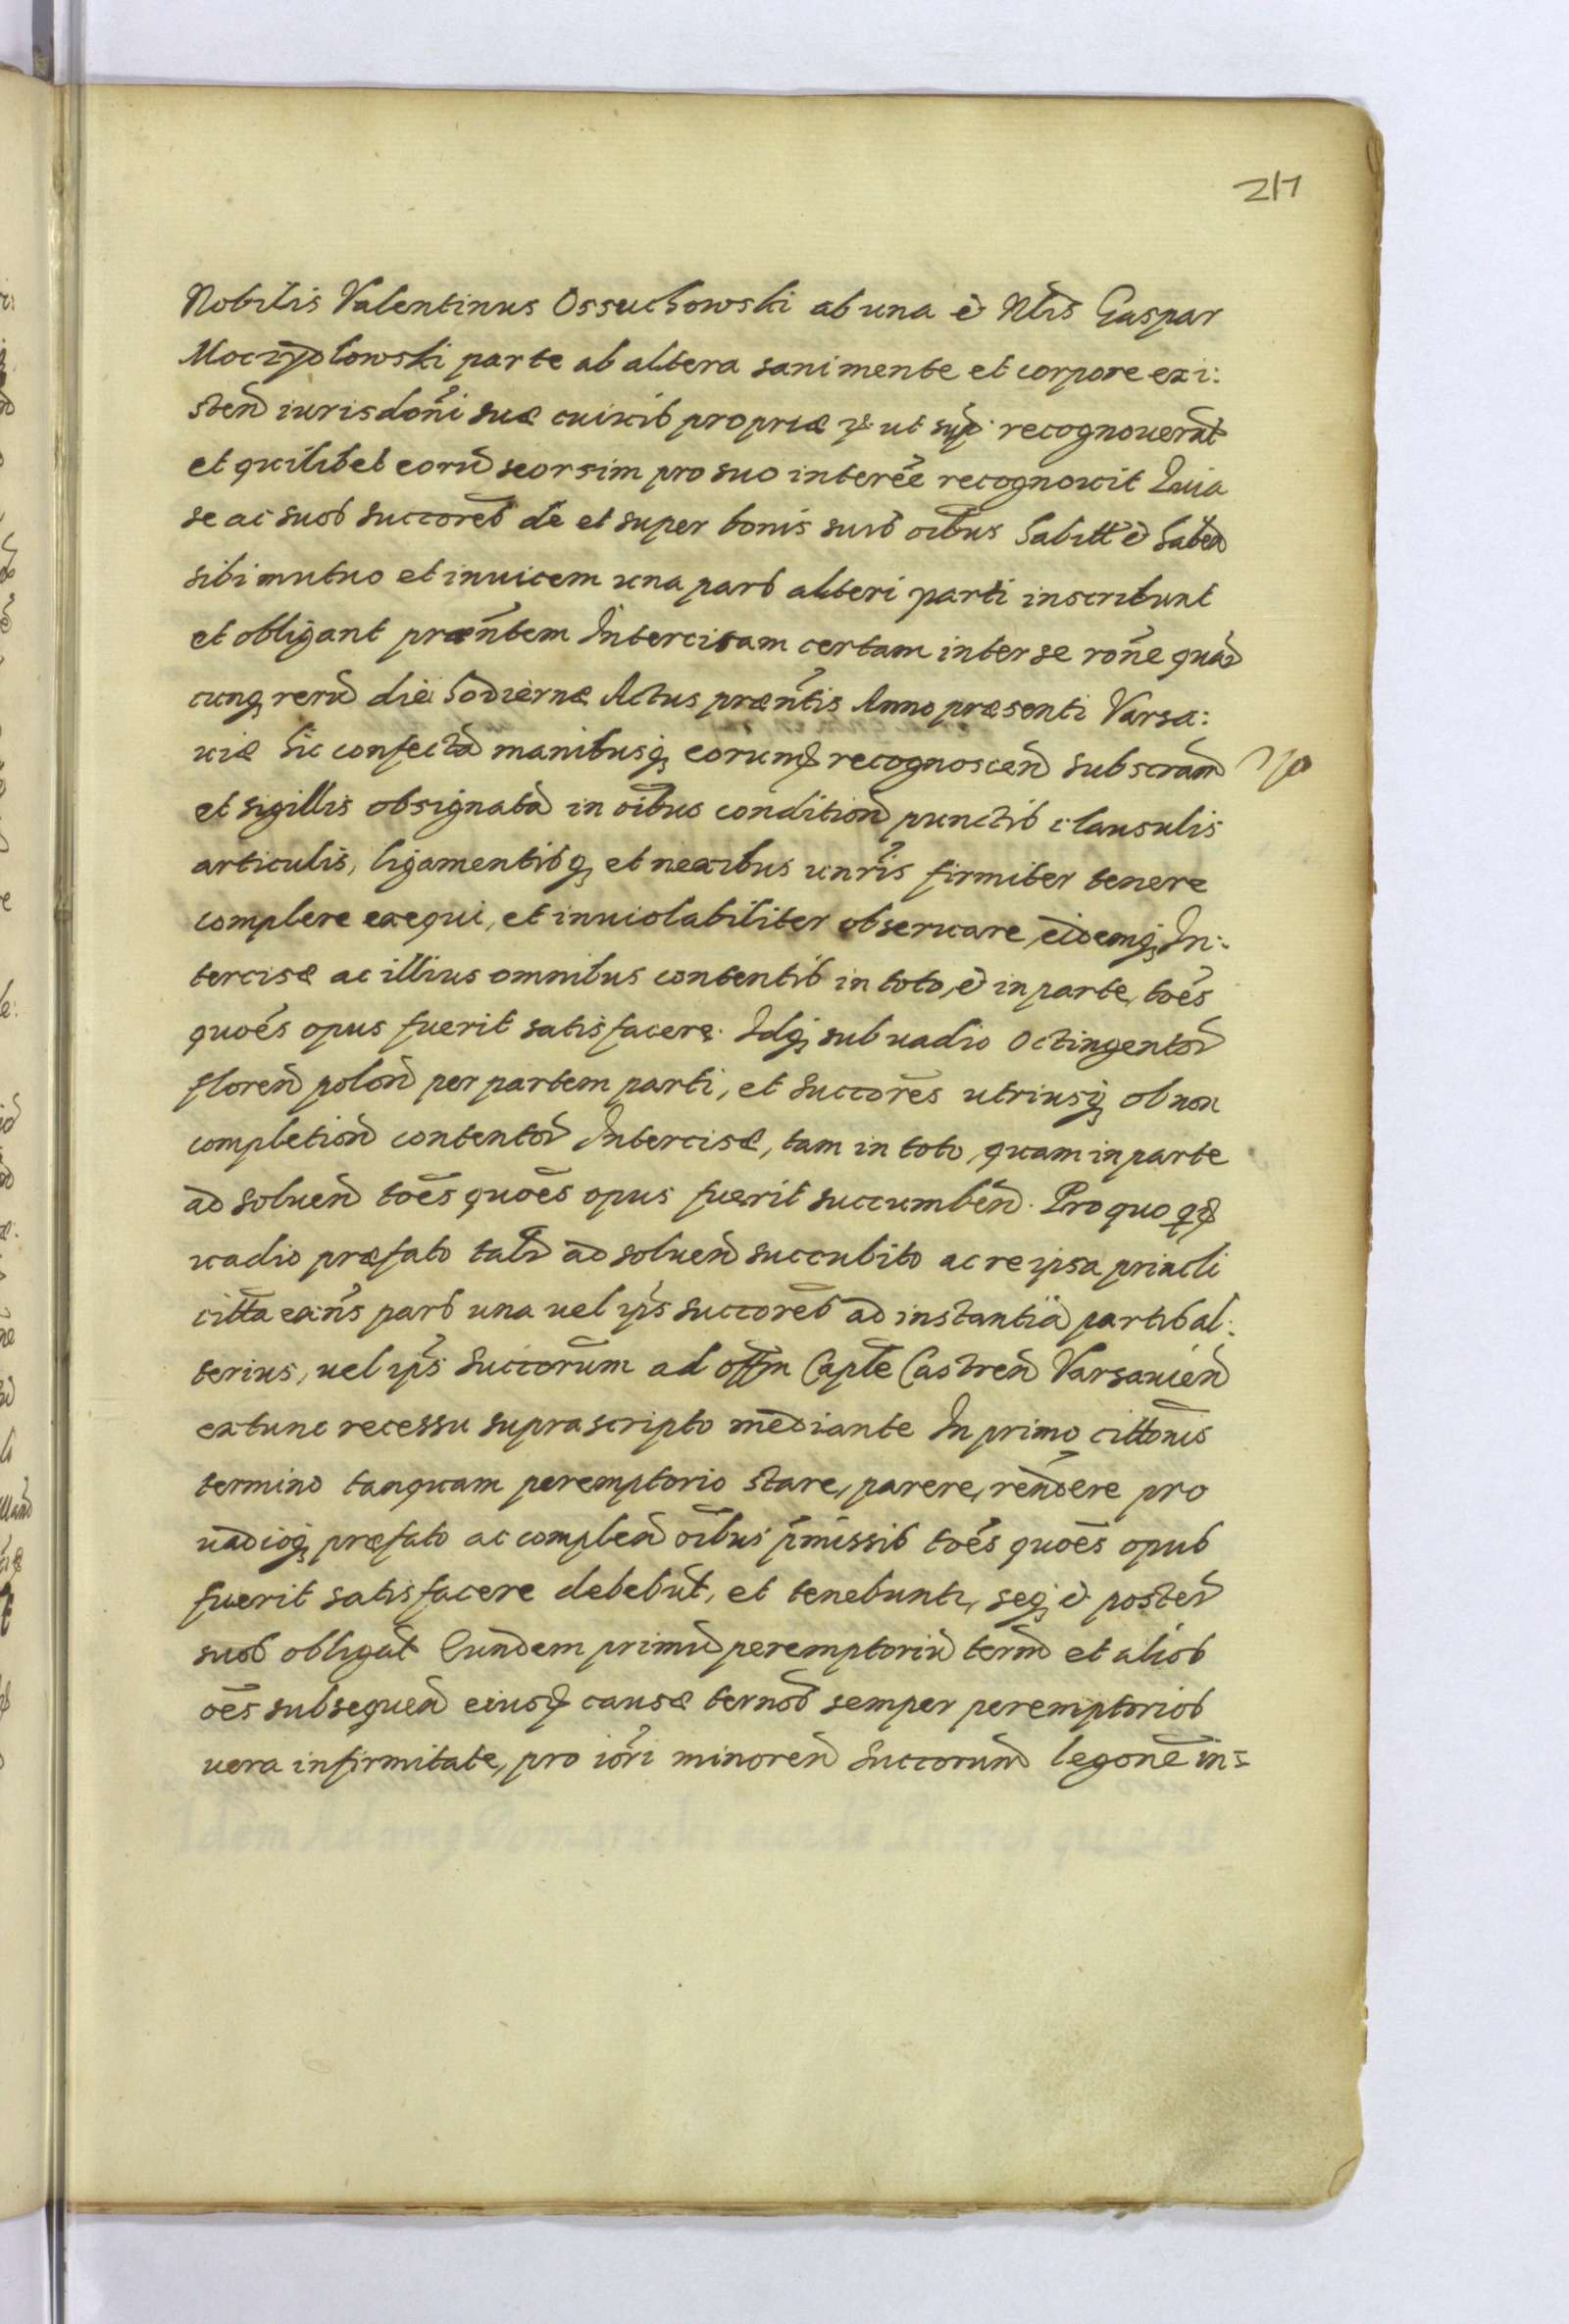 217
Nobilis Valentinus Ossuchowski ab una et Nlis Gaspar
Moczydlowski parte ab altera sani mente et corpore exi:
sten iurisdoni suæ cuiuis propriæ ut sup recognouerāt
et quilibet eorū seorsim pro suo interēe recognovit Quia
se ac suos succores de et super bonis suis oībus habitt et haben
sibi mutuo et inuicem una pars alteri parti inscribunt
et obligant præntem Intercisam certam inter se rōne quar
cunq rerū die hodiernæ Actus præntis Anno præsenti Varsa:
uiæ hic confectā manibusq eorund recognoscen subscram
et sigillis obsignatā in oībus condition punctis clausulis
articulis, ligamentisq et nexibus unris firmiter tenere
complere exequi, et inuiolabiliter obseruare, eidemq In:
tercisæ ac illius omnibus contentis in toto, et in parte, toēs
quoēs opus fuerit satisfacere. Idq sub uadio Octingentor
floren polon per partem parti, et succorēs utriusq ob non
completion contentor Intercisæ, tam in toto, quam in parte
ad soluen toēs quoēs opus fuerit succumben. Pro quo qd
uadio præfato taltr ad soluen succubito ac re ipsa princli
citta eans pars una uel ips succorēs ad instantiā partis al:
terius, uel ips succorum ad offm Caple Castren Varsauien
extunc recessu suprascripto mediante In primo cittonis
termino tanquam peremptorio stare, parere, rendere pro
uadioq præfato ac complen oībus pmissis toēs quoēs opus
fuerit satisfacere debebūt, et tenebuntr, seq et poster
suos obligāt Eundem primū peremptoriū term et alios
oēs subsequen eiusd causæ ternos semper peremptorios
uera infirmitate, pro iori minoren succorum legone in=